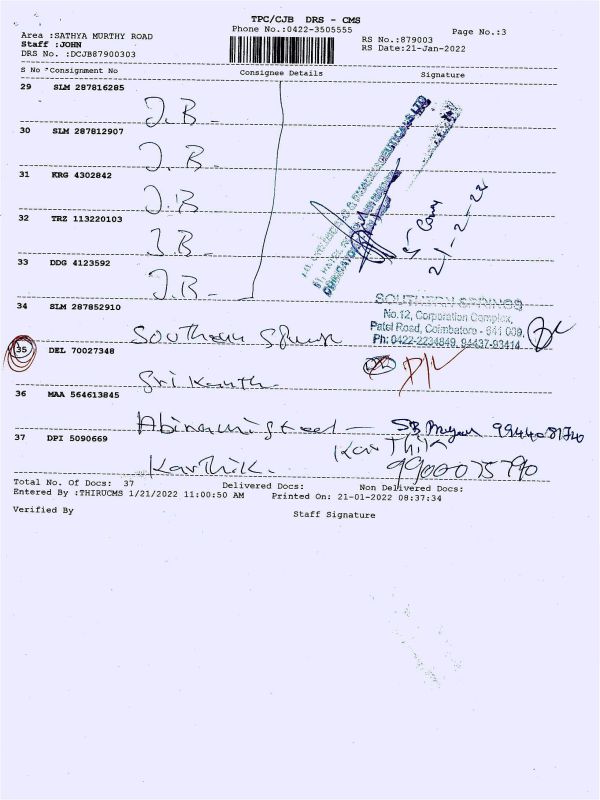 TPC/CJB DRS - CMS
Phone No.:0422-3505555
Page No.:3
Area :SATHYA MURTHY ROAD
RS No.:879003
Staff :JOHN
RS Date:21-Jan-2022
DRS No. :DCJB87900303
S No *Consignment No Consignee Details Signature
29 SLM 287816285
J.B-
30 SLM 287812907
J.B-
31 KRG 4302842
J.B
32 TRZ 113220103
J.B-
33 DDG 4123592
J.B-
21-2-22
34 SLM 287852910
SOUTHERN SPRINGS
No.12, Corporation Complex,
Patel Road, Coimbatore - 641 009,
Ph: 0422-2234849, 94437-93414
Southern
35 DEL 70027348
Srikanth
36 MAA 564613845
Abiramisteel -
37 DPI 5090669
Karthik
Karthik.
9900075790
Total No. Of Docs: 37 Delivered Docs: Non Delivered Docs:
Entered By :THIRUCMS 1/21/2022 11:00:50 AM Printed On: 21-01-2022 08:37:34
Verified By Staff Signature